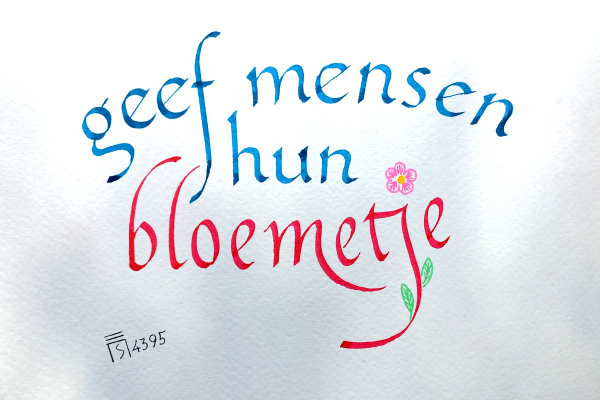 geef mensen
hun
bloemetje
S 4395